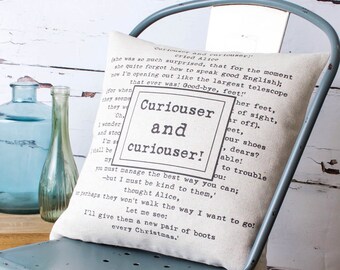 Curiouser and curiouser!'
Cried Alice
(she was so much surprised, that for the moment
she quite forgot how to speak good English);
now I'm opening out like the largest telescope
that ever was! Good-bye, feet!'
(for when
her feet,
they seemed
of sight,
they were
far off).
I wonder
on your shoes
and
dears?
shall be
to trouble
Curiouser
and
curiouser!
you must manage the best way you can;
—but I must be kind to them,'
thought Alice,
or perhaps they won't walk the way I want to go!
Let me see:
I'll give them a new pair of boots
every Christmas.'